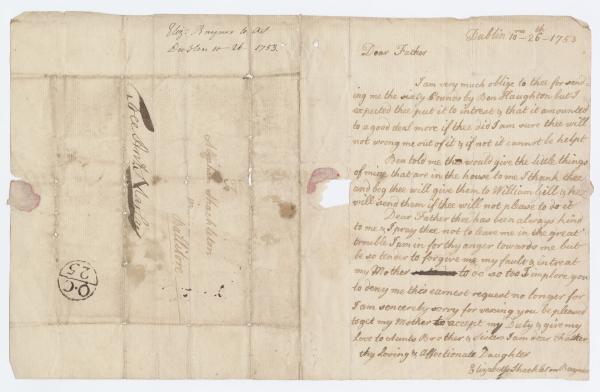 Eliz: Rayner to AS
Dublin 10-26-1753.
Abraham Shackleton
in
Ballitore
O·C
25
Dublin 10mo-26th-1753
Dear Father
I am very much oblige to thee for send-
ing me the sixty Pounds by Ben Haughton but I
expected thee put it to intrest & that it amounted
to a good deal more if thee did I am sure thee will
not wrong me out of it & if not it cannot be helpt
Ben told me thee would give the little things
of mine that are in the house to me I thank thee
and beg thee will give them to William Gill & he
will send them if thee will not please to do it
Dear Father thee has been always kind
to me & I pray thee not to leave me in the great
trouble I am in for thy anger towards me but
be so tender to forgive me my fault & intreat
my Mother to do so too I implore you
to deny me this earnest request no longer for
I am sencerely sorry for vexing you be pleased
to get my Mother to accept my Duty & give my
Love to Aunts Brother & Sisters I am dear Father
thy loving & affectionate Daughter
Elizabeth Shackleton Rayner